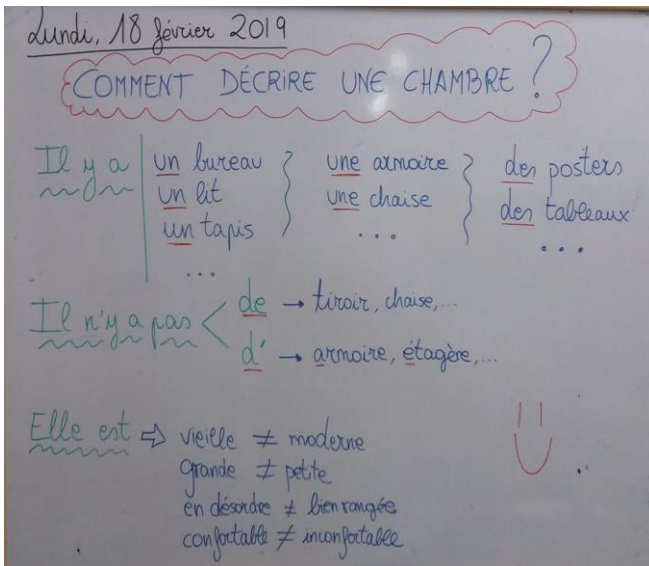 Lundi, 18 février 2019
COMMENT DÉCRIRE UNE CHAMBRE ?
Il y a un bureau une armoire des posters
un lit une chaise des tableaux
un tapis ... ...
...
Il n'y a pas de → tiroir, chaise,...
d' → armoire, étagère,...
Elle est ⇨ vieille ≠ moderne
grande ≠ petite
en désordre ≠ bien rangée
confortable ≠ inconfortable